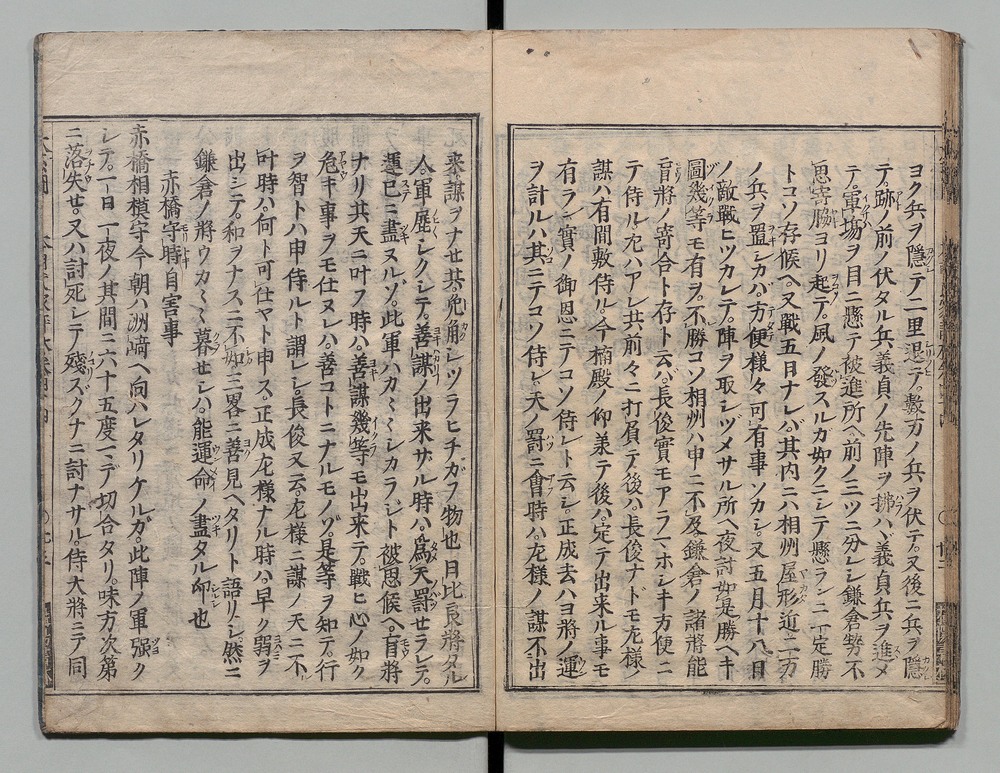 ヨク兵ヲ隠テ二里退テ。數万ノ兵ヲ伏テ。又後ニ兵ヲ隠
テ。跡ノ前ノ伏タル兵、義貞ノ先陣ヲ拂ハヾ義貞兵ヲ進メ
テ。軍場ヲ目ニ懸テ被進所ヘ前ノ三ツニ分レシ鎌倉勢不
思寄脇ヨリ起テ。風ノ發スルカ如クニシテ懸ラシニ一定勝
トコソ存候ヘ。又戰五日ナレバ其内ニハ相州ノ屋形近ニ二万
ノ兵ヲ置シカバ。方便様々可有事ソカシ。又五月十八日
ノ敵戰ヒツカレテ。陣ヲ取シヅメサル所ヘ夜討如是勝ヘキ
圖幾等モ有ヲ。不勝コソ相州ハ申ニ不及鎌倉ノ諸將能
盲將ノ寄合ト存ト云バ。長俊實モアラマホシキ方便ニ
テ侍ル左ハアレ共前々ニ打負テ後ハ。長俊ナドモ左様ノ
謀ハ有間敷侍ル。今楠殿ノ仰兼テ後ハ定テ出来ル事モ
有ラン實ノ御恩ニテコソ侍レト云シ。正成去ハヨ將ノ運
ヲ計ルハ其ニテコソ侍レ。天ノ罸ニ會時ハ。左様ノ謀不出
来。謀ヲナセ共。兎角レツラヒチガフ物也。且ハ良將タル
人。軍屁シクシテ。善謀ノ出来サル時ハ。爲天罸せラレテ。
運已ニ盡ヌルゾ。此軍ハカ〻ミシカラジト被思候ヘ。盲將
ナリ共天ニ叶フ時ハ。善謀幾等モ出来テ。戰ヒ心ノ如ク
危キ事ヲモ仕ヌレバ。善コトニナルモノゾ。是等ヲ知テ。行
ヲ智トハ申侍ルト謂レシ。長俊又云。左様ニ謀ノ天ニ不
叶時ハ何ト可仕ヤト申ス。正成左様ナル時ハ早ク弱ヲ
出シテ。和ヲナスニ不如。三畧ニ善見ヘタリト語リシ。然ニ
鎌倉ノ將ウカ〻ミ暮セシハ。能運命ノ盡タル印也
赤橋守時自害事
赤橋相模守今朝ハ洲﨑ヘ向ハレタリケルガ。此陣ノ軍強ク
シテ。一日一夜ノ其間ニ六十五度マデ切合タリ。味方次第
ニ落失せ。又ハ討死シテ殘スクナニ討ナサル。侍大將ニテ同